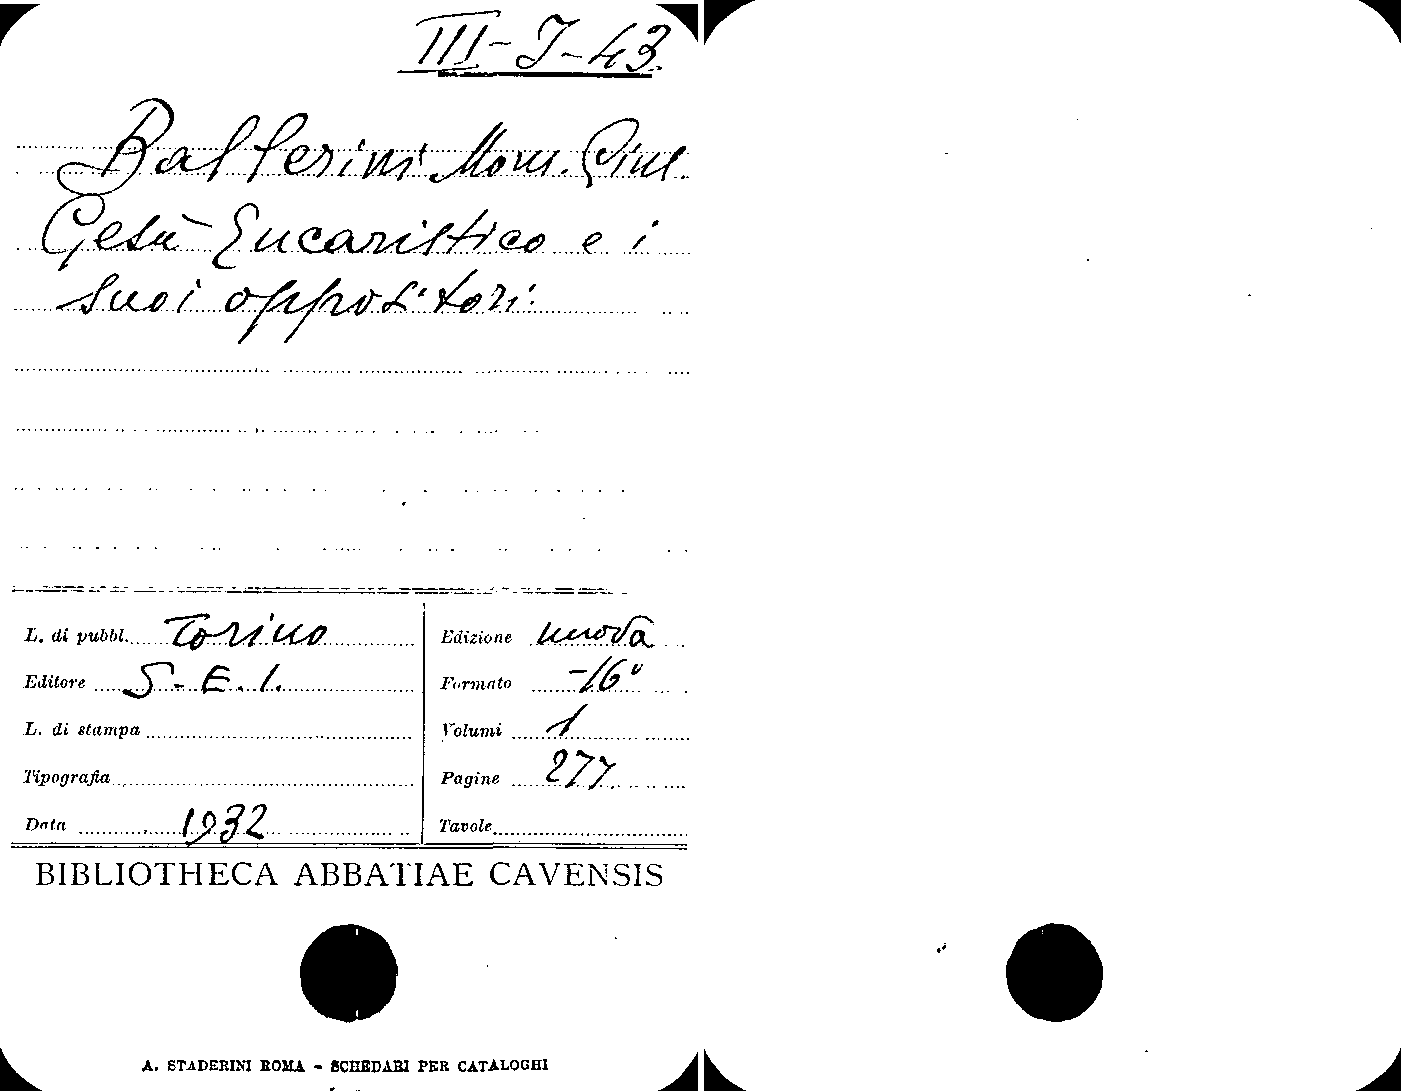 III-J-43
Ballerini Mons. Giul.
Gesù Eucaristico e i
suoi oppositori
L. di pubbl. Torino
Editore S.E.I.
L. di stampa
Tipografia
Data 1932
Edizione nuova
Formato -16°
Volumi 1
Pagine 277
Tavole
BIBLIOTHECA ABBATIAE CAVENSIS
A. STADERINI ROMA - SCHEDARI PER CATALOGHI